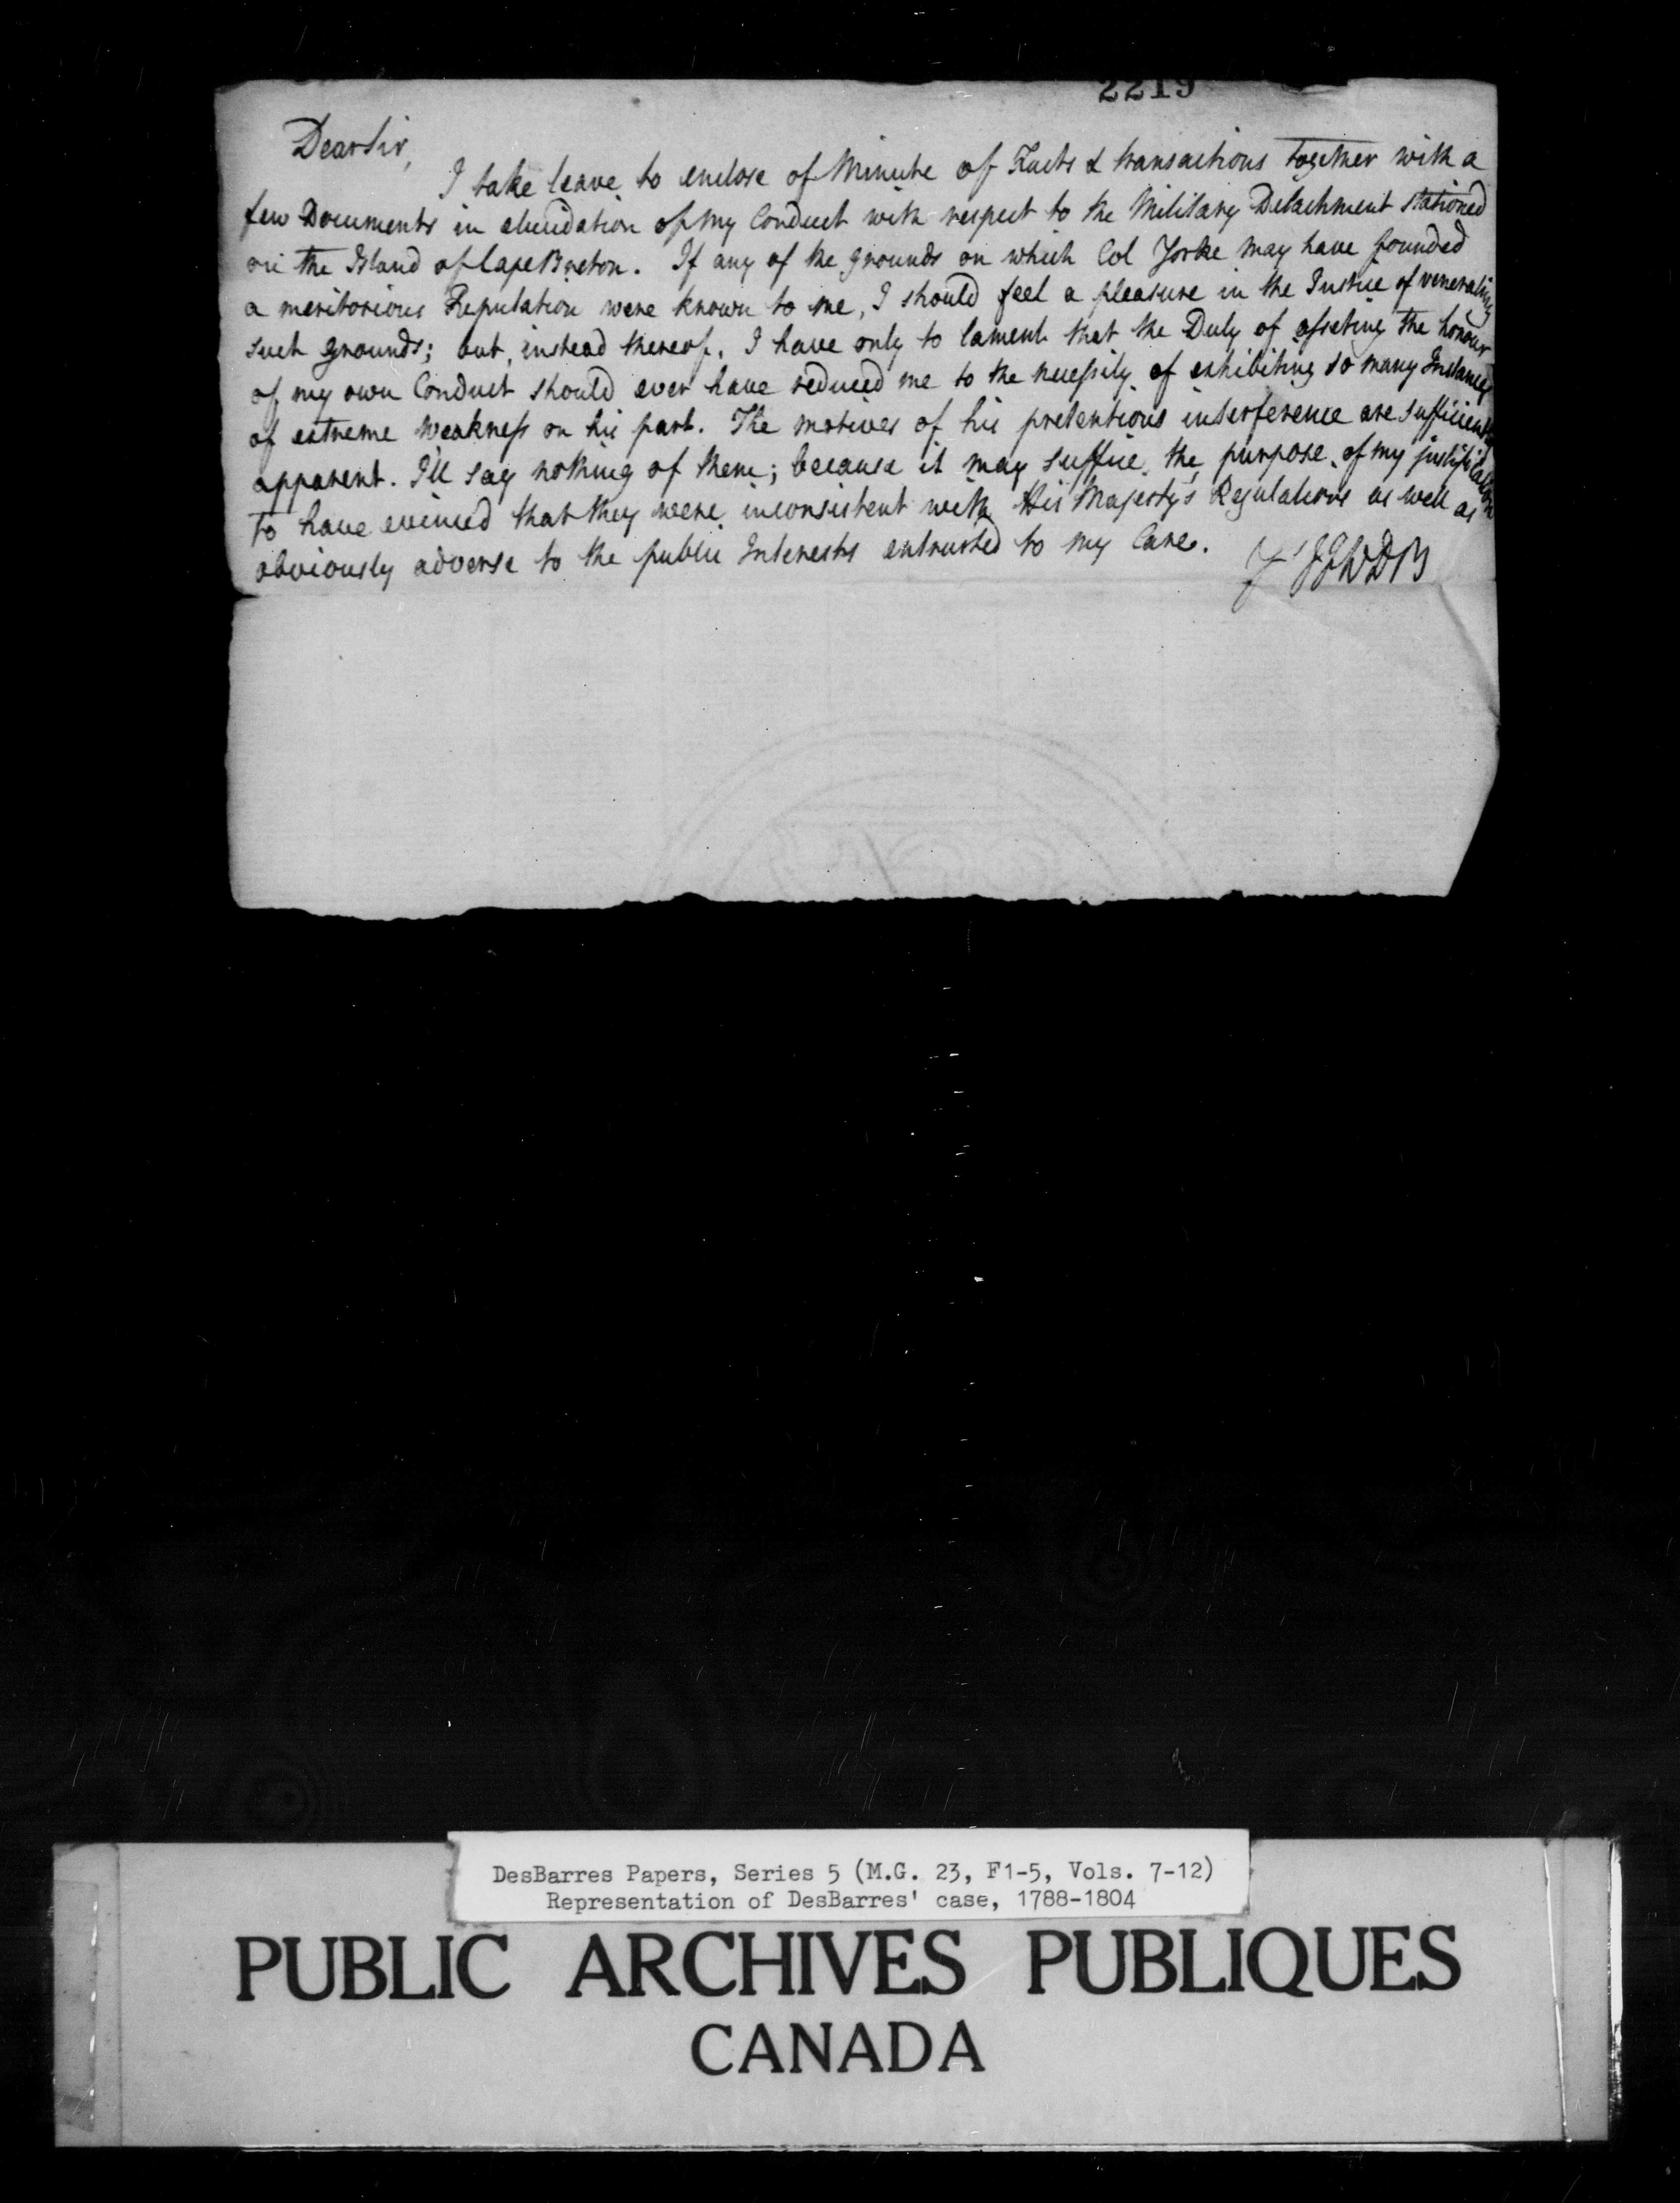 2219
Dear Sir,
I take leave to enclose of Minute of Facts & transactions together with a
few Documents in elucidation of my Conduct with respect to the Military Detachment stationed
on the Island of Cape Breton. If any of the grounds on which Col Yorke may have founded
a meritorious Reputation were known to me, I should feel a pleasure in the Justice of venerating
such grounds; but, instead thereof, I have only to lament that the Duty of asserting the honour
of my own Conduct should ever have reduced me to the necessity of exhibiting so many Instances
of extreme weakness on his part. The motives of his pretentious interference are sufficiently
apparent. I'll say nothing of them; because it may suffice the purpose of my justification
to have evinced that they were inconsistent with His Majesty's Regulations as well as
obviously adverse to the public Interests entrusted to my Care.
JFWDB
DesBarres Papers, Series 5 (M.G. 23, F1-5, Vols. 7-12)
Representation of DesBarres' case, 1788-1804
PUBLIC ARCHIVES PUBLIQUES
CANADA